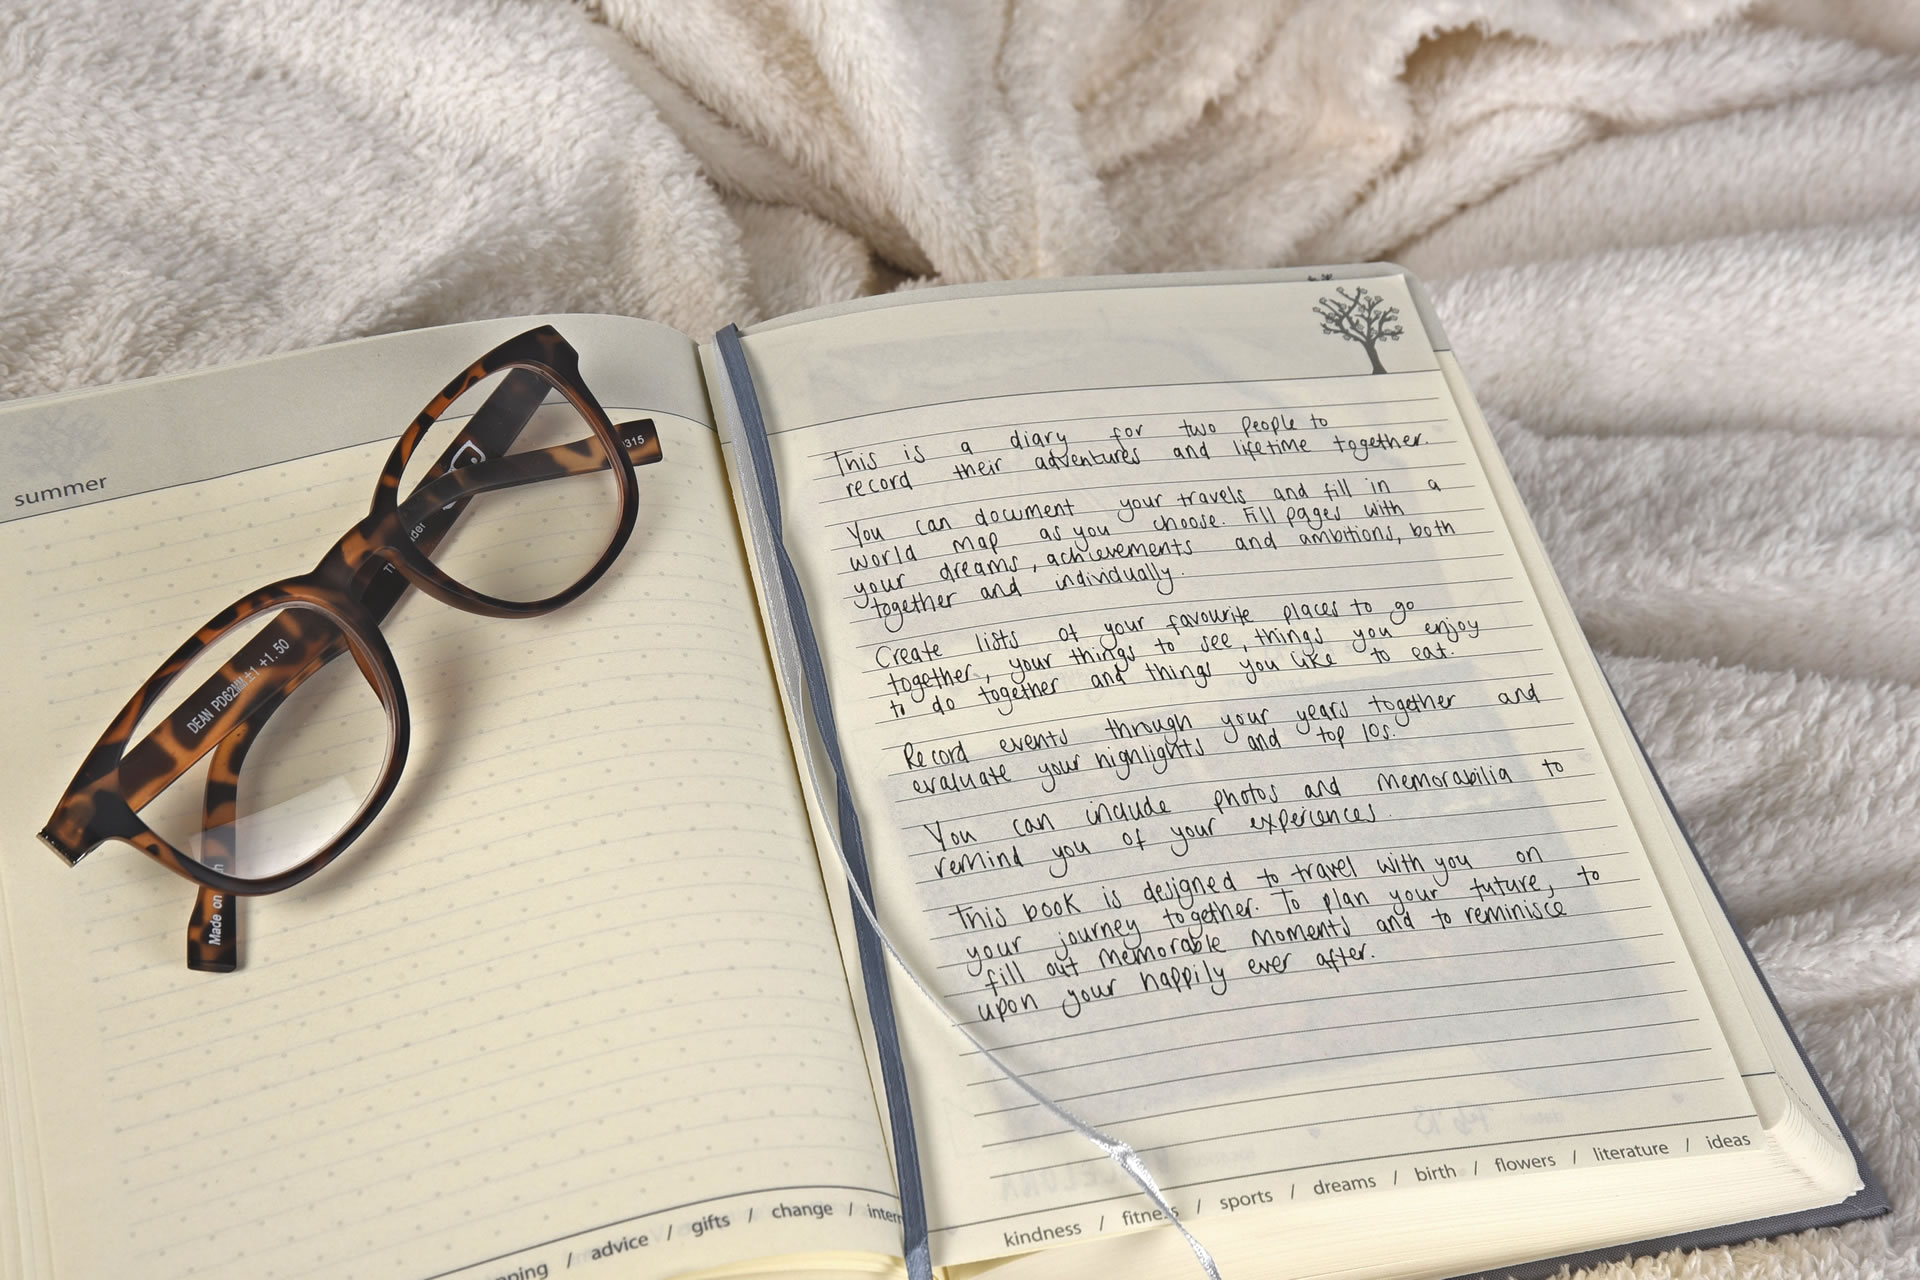 summer
DEAN PD62MM ±1 +1.50
315
Made on
advice / gifts / change /
This is a diary for two people to
record their adventures and lifetime together.
You can document your travels and fill in a
world map as you choose. Fill pages with
your dreams, achievements and ambitions, both
together and individually.
Create lists of your favourite places to go
together, your things to see, things you enjoy
to do together and things you like to eat.
Record events through your years together and
evaluate your highlights and top 10s.
You can include photos and memorabilia to
remind you of your experiences.
This book is designed to travel with you on
your journey together. To plan your future, to
fill out memorable moments and to reminisce
upon your happily ever after.
kindness / fitness / sports / dreams / birth / flowers / literature / ideas